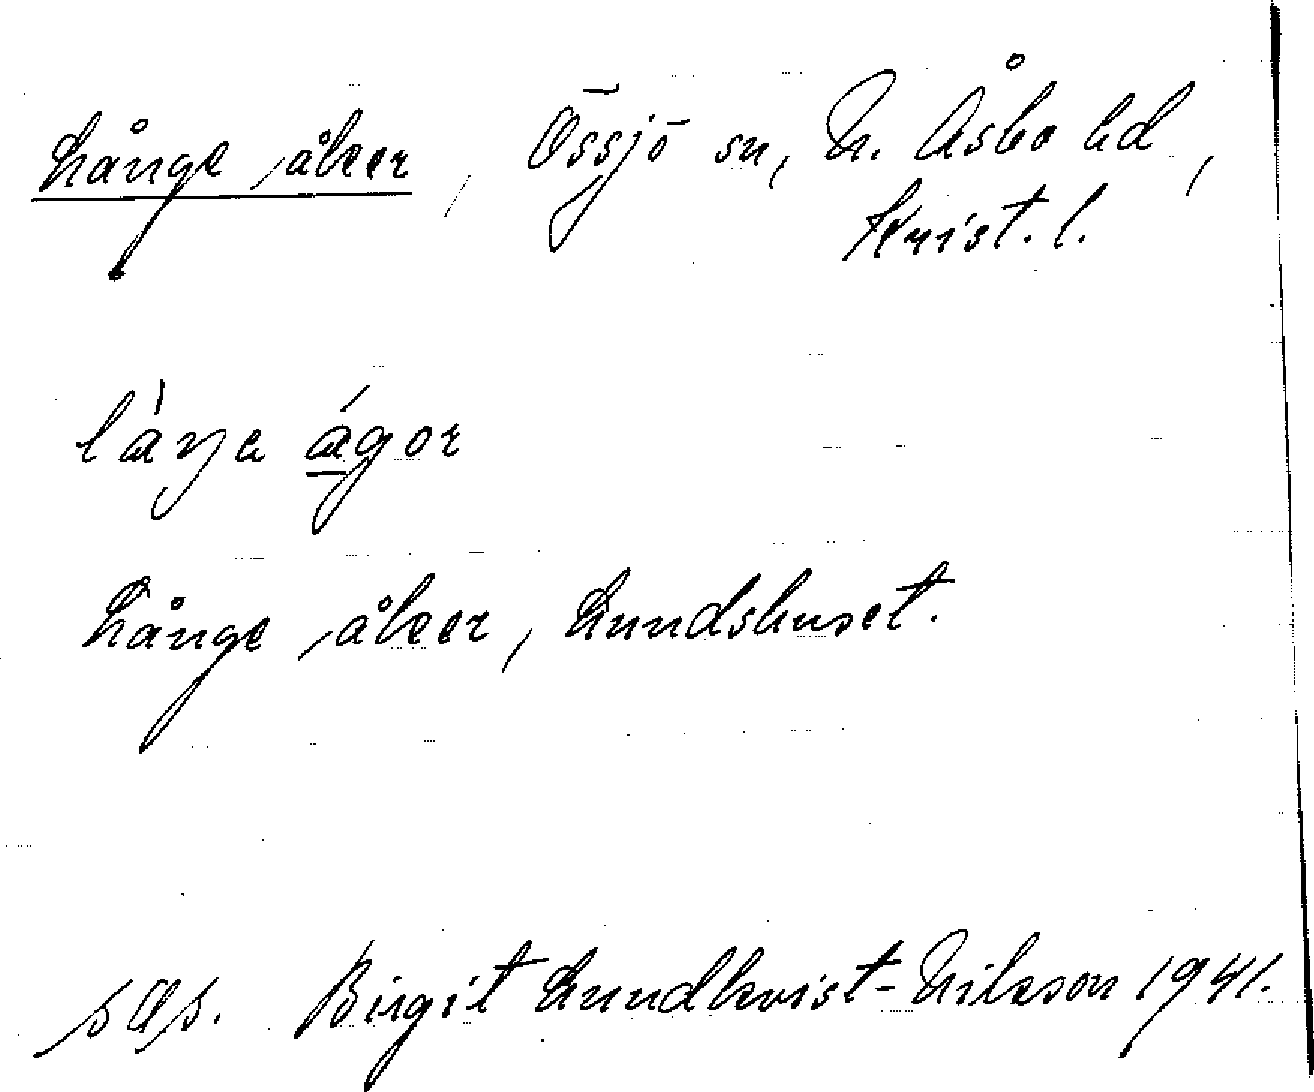 Långe åker, Össjö sn, N. Åsbo hd,
Krist. l.
láŋa ágor
Långe åker, Lundshuset.
Birgit Lundkvist-Nilsson 1941.